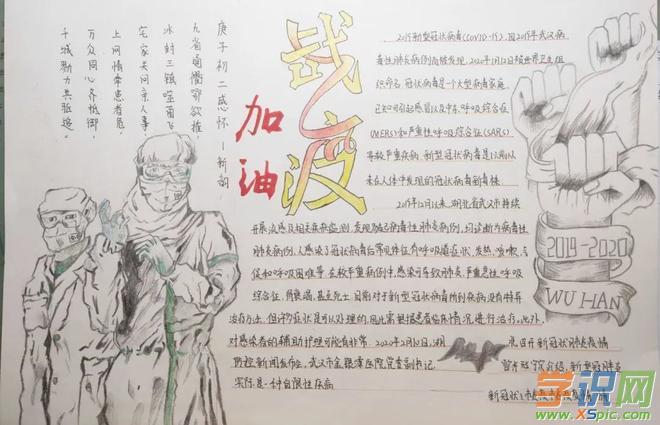 庚子初二感怀——新韵
九省通衢
万众同心齐抵御
战疫
加油
2019新型冠状病毒(COVID-19),因2015年武汉病
毒性肺炎病例而被发现,2020年1月12日被世界卫生组
织命名。冠状病毒是一个大型病毒家庭,
已知可引起感冒以及中东呼吸综合征
(MERS)和严重性呼吸综合征(SARS)
等较严重疾病。新型冠状病毒是以前从
未在人体中发现的冠状病毒新毒株。
2019年12月以来,湖北省武汉市持续
开展流感及相关疾病监测,发现多起病毒性肺炎病例,均诊断为病毒性
肺炎病例。人感染了冠状病毒后常见体征有呼吸道症状、发热、咳嗽、气
促和呼吸困难等。在较严重病例中,感染可导致肺炎、严重急性呼吸
综合征、肾衰竭,甚至死亡。目前对于新型冠状病毒所致疾病没有特异
治疗方法。但许多症状是可以处理的,因此需根据患者临床情况进行治疗。此外,
对感染者的辅助护理可能有非常
2020年2月10日,湖
北召开新冠状肺炎疫情
防控新闻发布会,武汉市金银潭医院党委副书记
介绍,新型冠状
实际是一种自限性疾病
2019-2020
WU HAN
学识网
www.XSpic.com